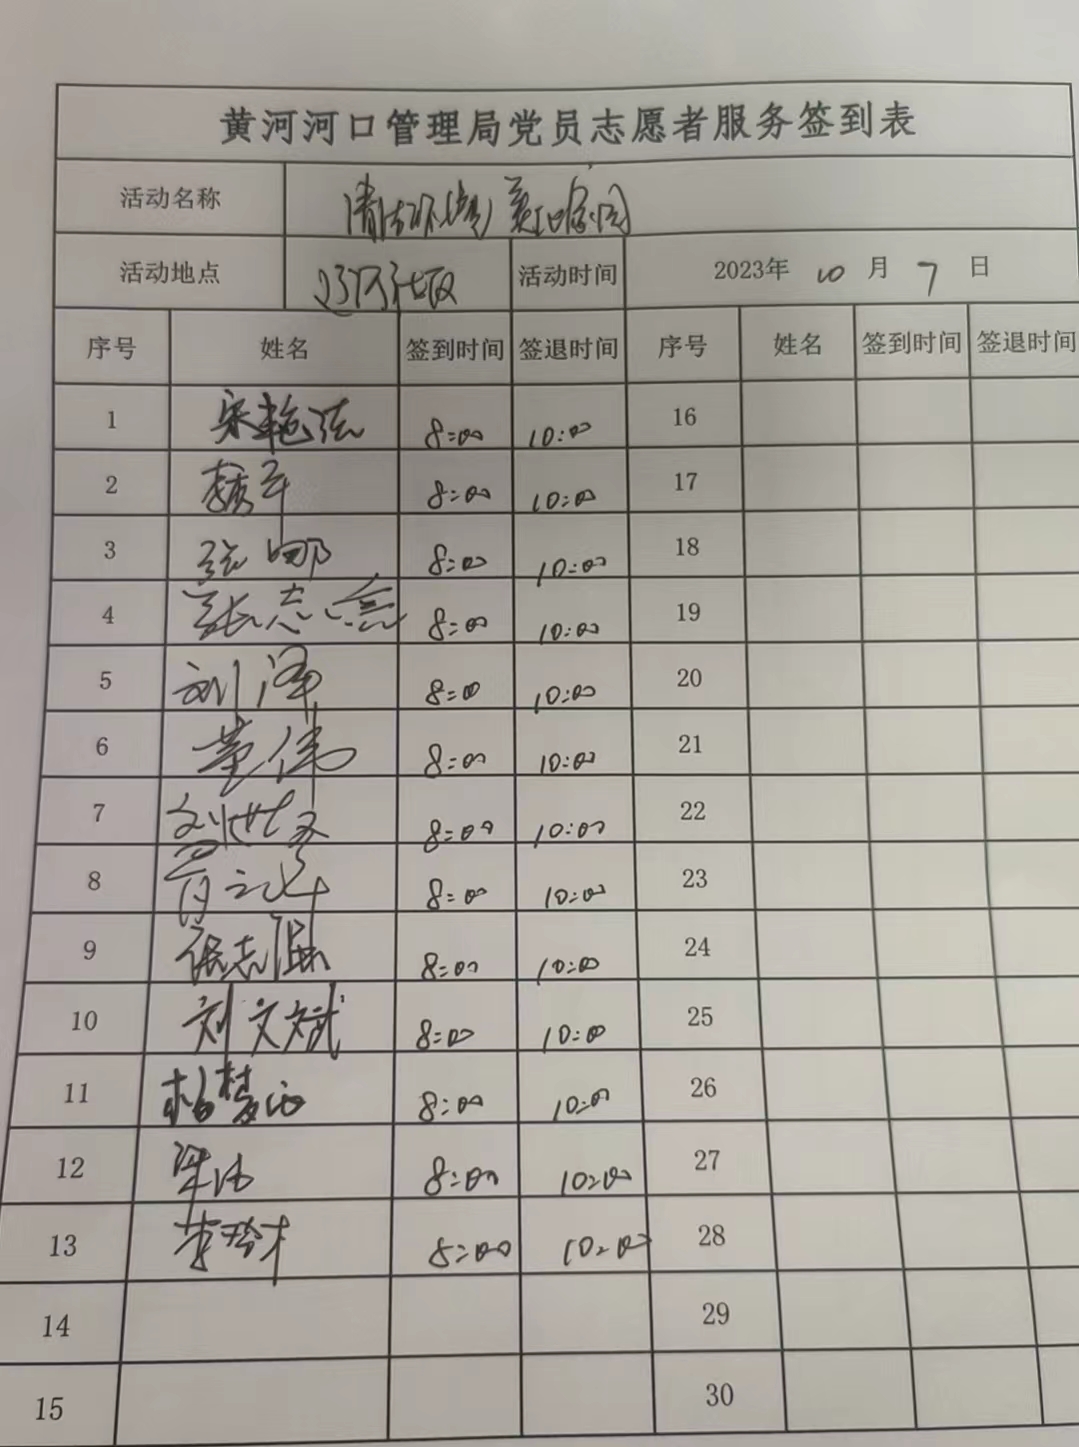 黄河河口管理局党员志愿者服务签到表
活动名称 清洁环境 美化家园
活动地点 活动时间 2023年 10 月 7 日
序号 姓名 签到时间 签退时间 序号 姓名 签到时间 签退时间
1 宋艳 8:00 10:00 16
2 8:00 10:00 17
3 张娜 8:00 10:00 18
4 张志 8:00 10:00 19
5 刘泽 8:00 10:00 20
6 董伟 8:00 10:00 21
7 刘世 8:00 10:00 22
8 8:00 10:00 23
9 张志 8:00 10:00 24
10 刘文斌 8:00 10:00 25
11 杨梦 8:00 10:00 26
12 梁 8:00 10:00 27
13 8:00 10:00 28
14 29
15 30